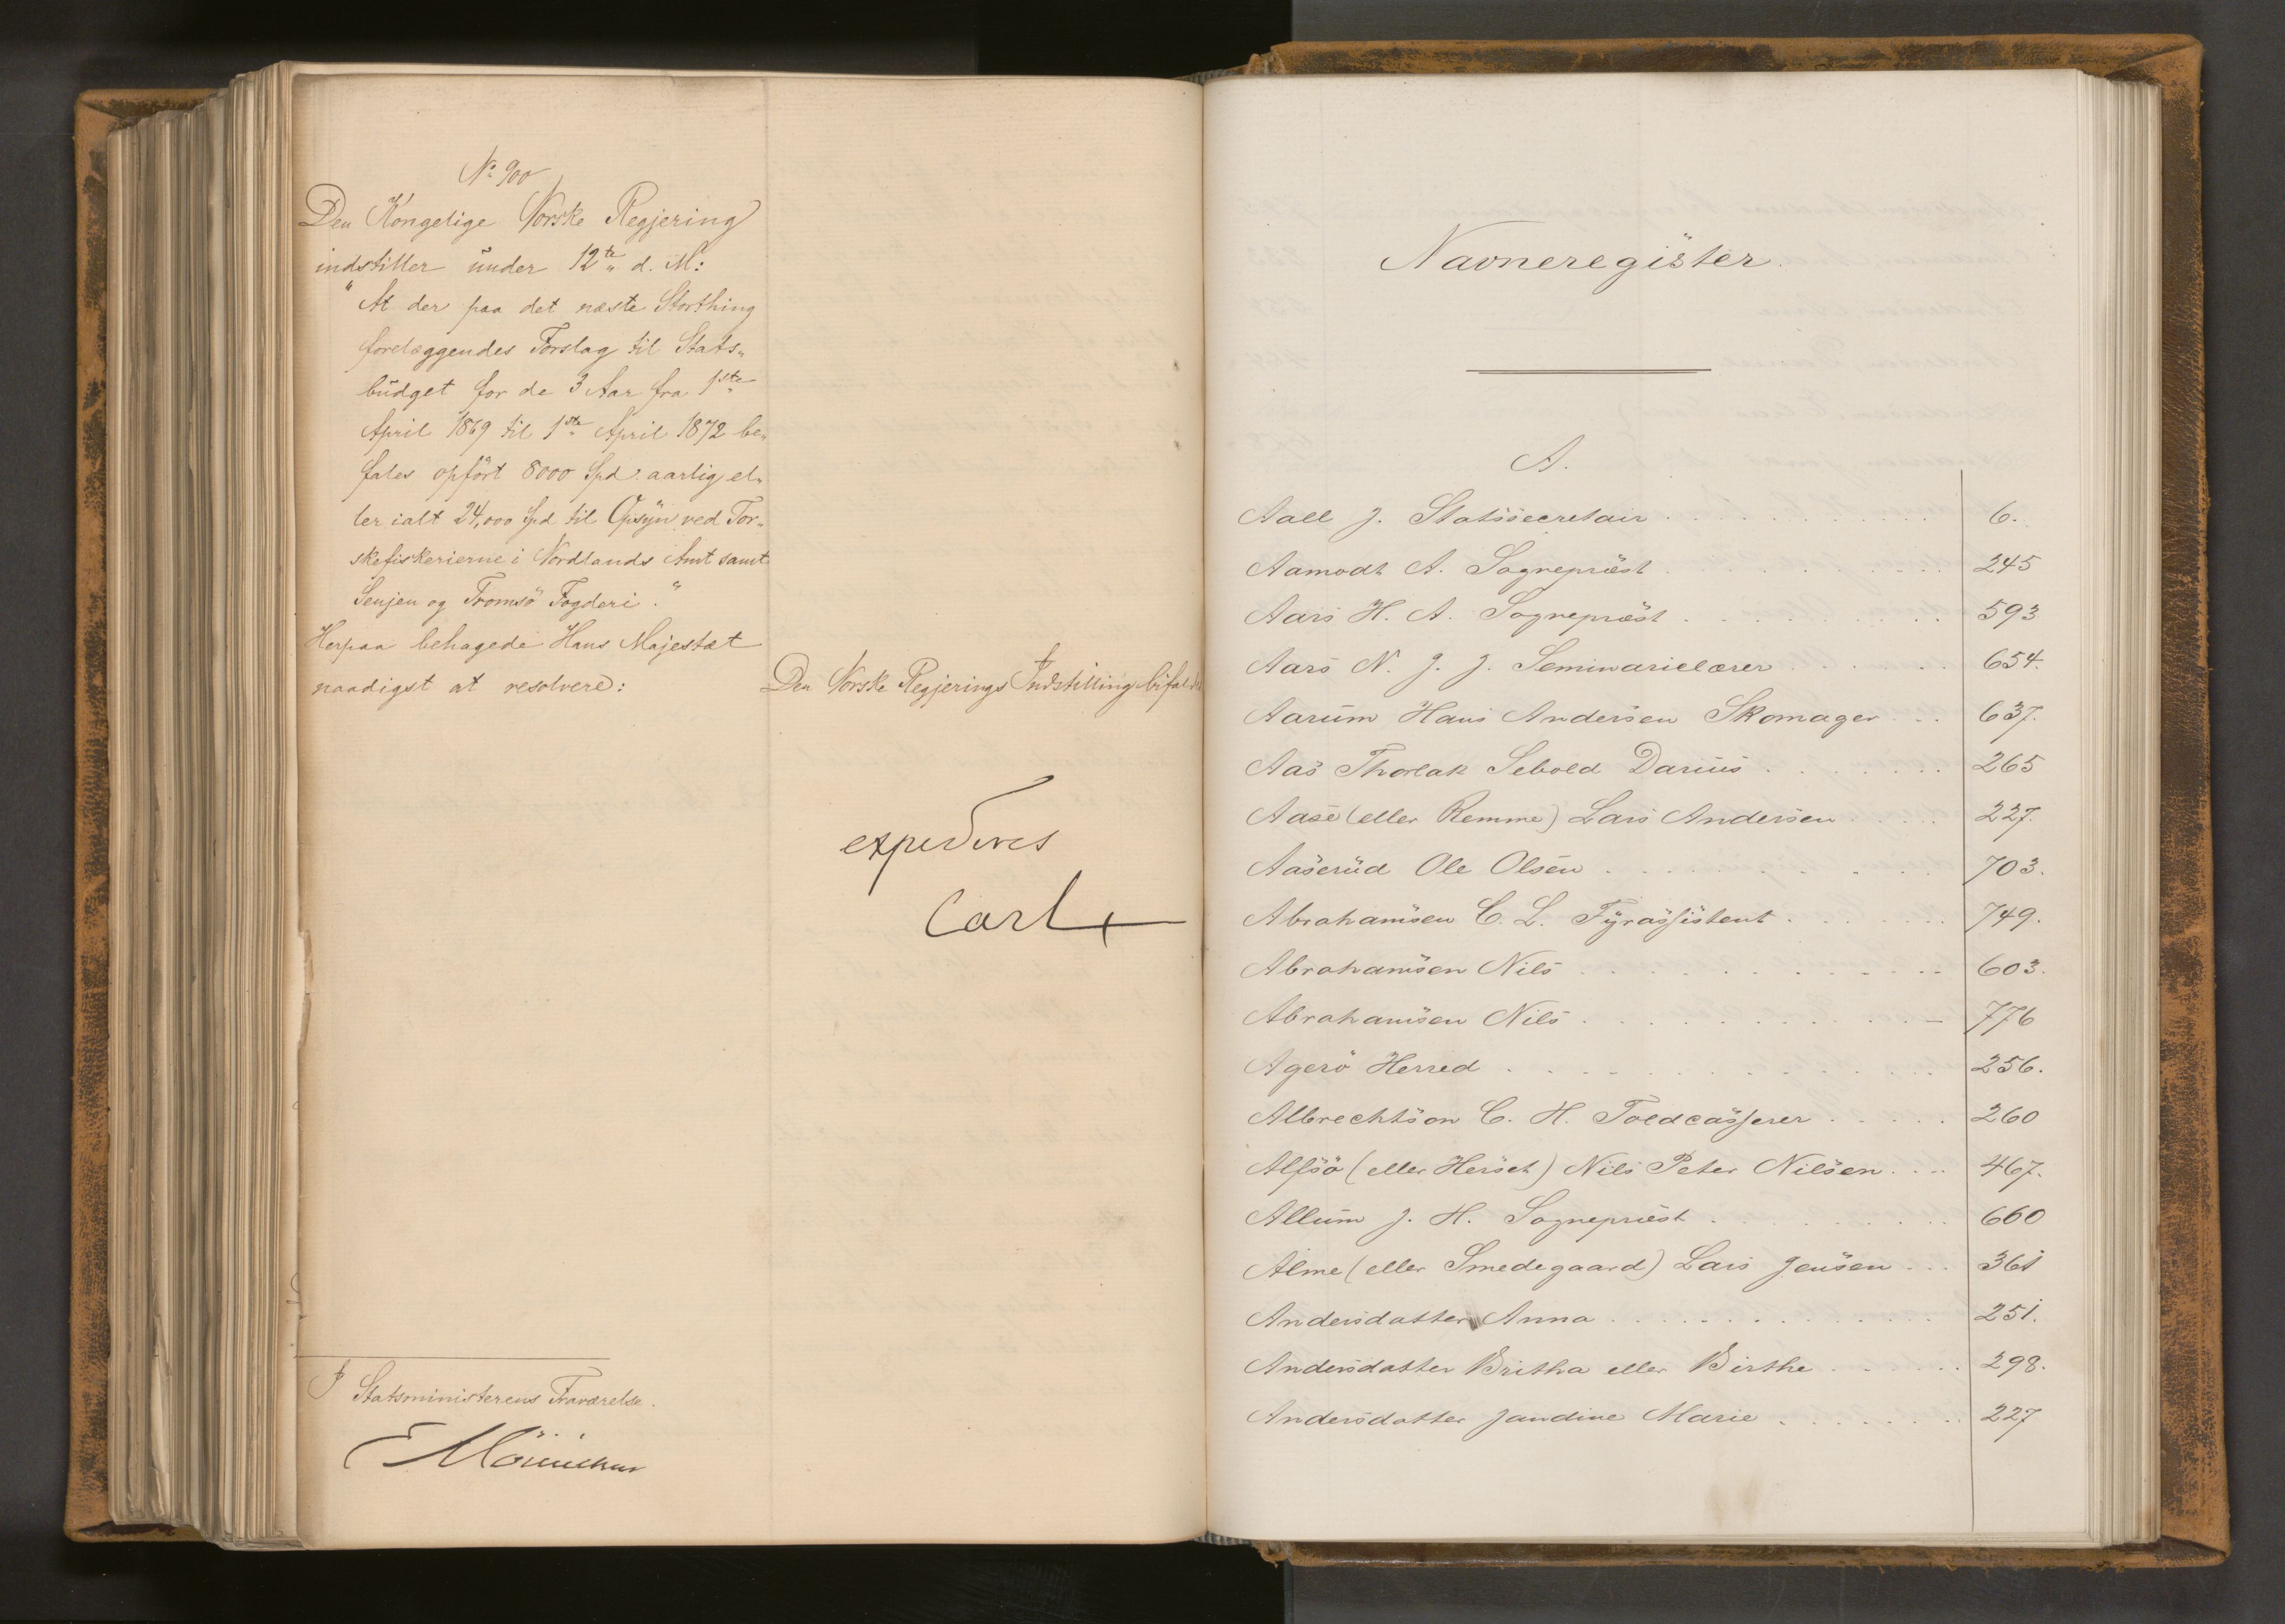 No 900
Den Kongelige Norske Regjering
indstiller under 12te d. M:
"At der paa det næste Storthing
forelæggendes Forslag til Stats„
budget for de 3 Aar fra 1ste
April 1869 til 1ste April 1872 be„
fales opført 8000 Spd. aarlig el„
ler ialt 24,000 Spd til Opsyn ved Tor„
skefiskerierne i Nordlands Amt samt
Senjen og Tromsö Fogderi."
Herpaa behagede Hans Majestæt
naadigst at resolvere:
Den Norske Regjerings Indstilling bifaldes
expederes
Carl
I Statsministerens Fraværelse.
Navneregister.
A.
Aall J. Statssecretair 6.
Aamodt A. Sognepræst 245
Aars H. A. Sognepræst 593
Aars N. J. J. Seminarielærer 654.
Aarum Hans Andersen Skomager 637.
Aas Thorlak Sebold Darius 265
Aase (eller Remme) Lars Andersen 227.
Aaserud Ole Olsen 703.
Abrahamsen C. L. Fyrassistent 749.
Abrahamsen Nils 603.
Abrahamsen Nils 776
Agerö Herred 256.
Albrechtson C. H. Toldcasserer 260
Alfsö (eller Herset) Nils Peter Nilsen 467.
Allum J. H. Sognepræst 660
Alme (eller Smedegaard) Lars Jensen 361
Andersdatter Anna 251.
Andersdatter Britha eller Birthe 298.
Andersdatter Jandine Marie 227